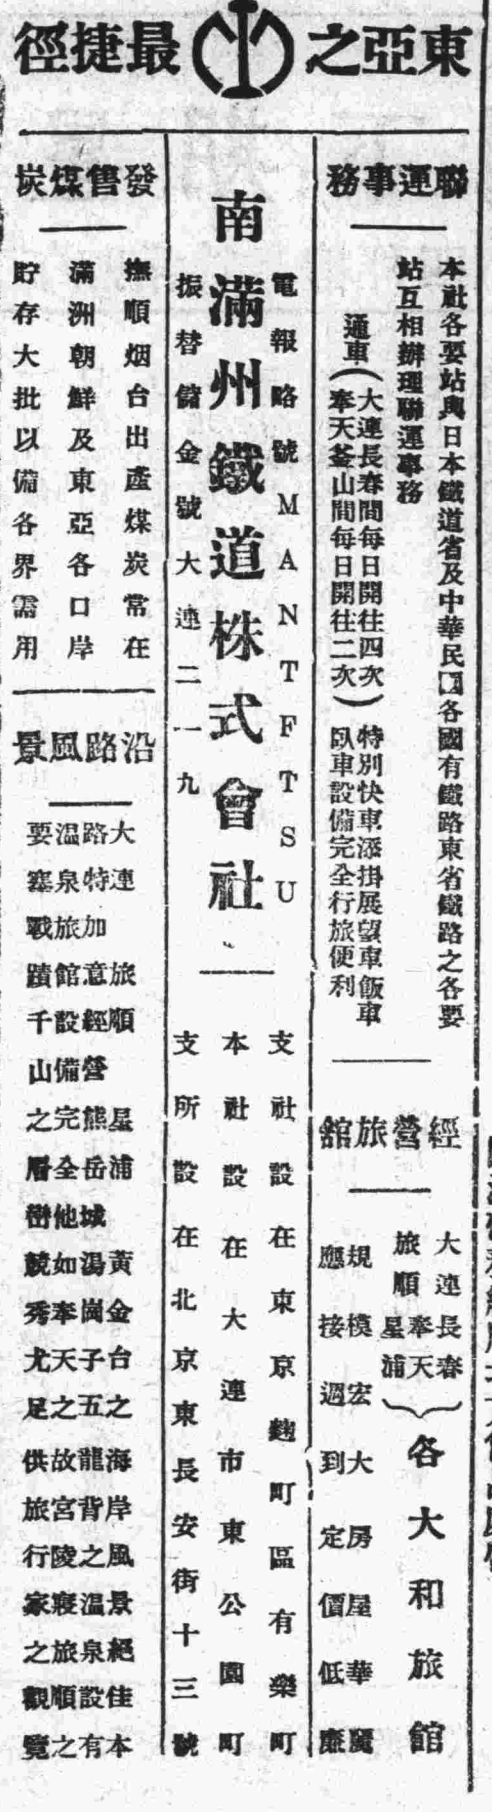 東亞之最捷徑
聯運事務
本社各要站與日本鐵道省及中華民國各國有鐵路東省鐵路之各要
站互相辦理聯運事務
通車(大連長春間每日開往四次
奉天釜山間每日開往二次)
特別快車添掛展望車飯車
臥車設備完全行旅便利
經營旅舘
大連 長春
旅順 奉天
星浦
各大和旅館
規模宏大房屋華麗
應接週到定價低廉
電報略號MANTFTSU
南滿州鐵道株式會社
振替儲金號大連二一九
支社設在東京麴町區有樂町
本社設在大連市東公園町
支所設在北京東長安街十三號
發售煤炭
撫順烟台出產煤炭常在
滿洲朝鮮及東亞各口岸
貯存大批以備各界需用
沿路風景
大連 旅順 星浦 黃金台之海岸風景絕佳本
路特加意經營熊岳城湯崗子五龍背之溫泉設有
溫泉旅館設備完全他如奉天之故宮陵寢旅順之
要塞戰蹟千山之層巒競秀尤足供旅行家之觀覽